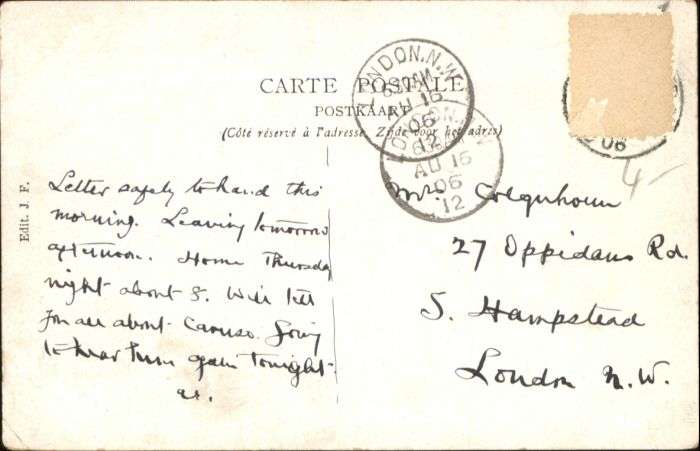 CARTE POSTALE
POSTKAART
(Côté réservé à l'adresse. Zijde voor het adres)
Edit. J. F.
LONDON.N.W.
6.30AM
AU 15
06
12
LONDON.N.W
AU 15
06
12
06
4-
Letter safely to hand this
morning. Leaving tomorrow
afternoon. Home Thursday
night about 8. Will tell
you all about Caruso. Going
to hear him again tonight.
Mrs Colquhoun
27 Oppidans Rd.
S. Hampstead
London N.W.